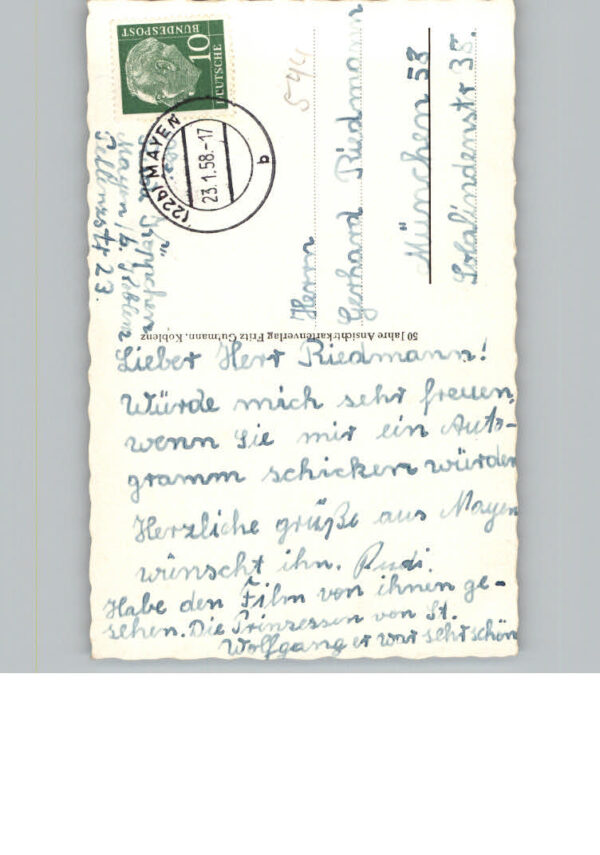 Lieber Herr Riedmann!
Würde mich sehr freuen,
wenn Sie mir ein Auto-
gramm schicken würden
Herzliche grüße aus Mayen
wünscht ihn. Rudi.
Habe den Film von ihnen ge-
sehen. Die Prinzessin von St.
Wolfgang er war sehr schön
Herrn
Gerhard Riedmann
München 58
DEUTSCHE
BUNDESPOST
10
(22b) MAYEN
23.1.58.-17
b
544
Mayen
23.
50 Jahre Ansichtkartenverlag Fritz Gutmann, Koblenz